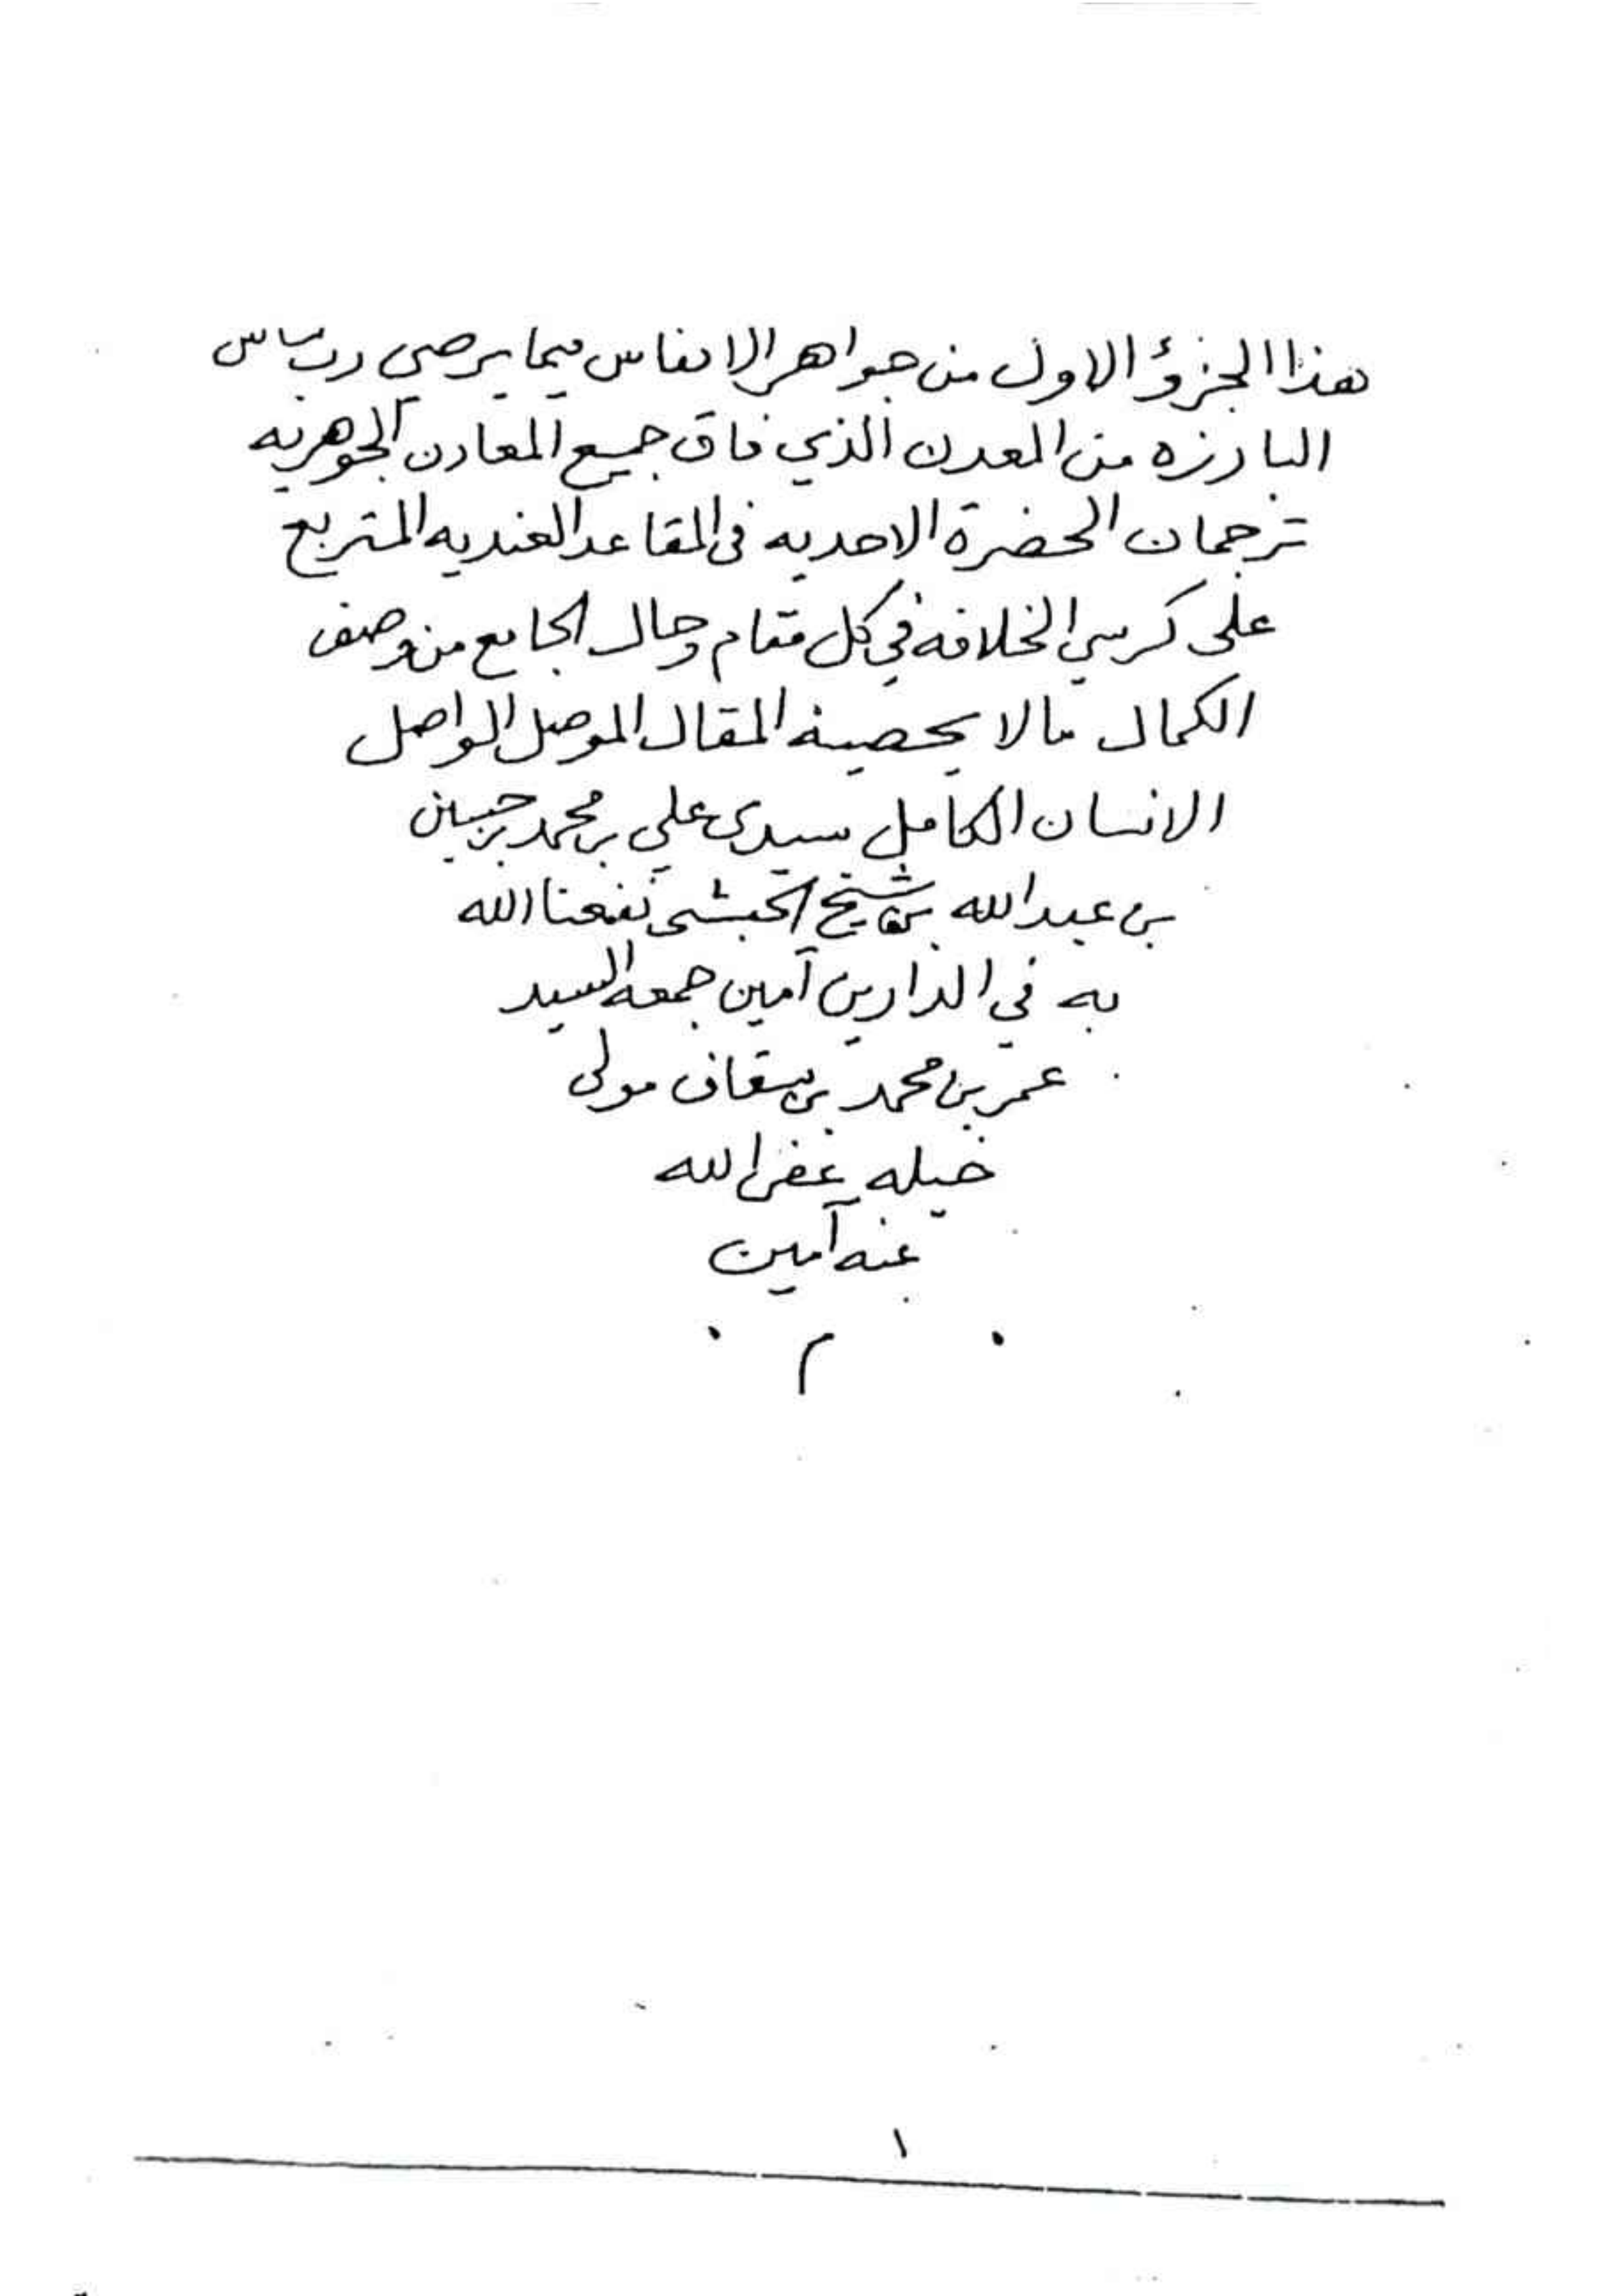 هذا الجزؤ الاول من جواهر الانفاس فيما يرضي رب الناس
البارزه من المعدن الذي فاق جميع المعادن الجوهريه
ترجمان الحضرة الاحديه في المقاعد العنديه المتربع
على كرسي الخلافه في كل مقام وحال الجامع من وصف
الكمال مالا يحصيه المقال الموصل الواصل
الانسان الكامل سيدي علي بن محمد بن حسين
بن عبدالله بن شيخ الحبشي نفعنا الله
به في الدارين آمين جمعه السيد
عمر بن محمد بن سقاف مولى
خيله غفر الله
عنه آمين
م
١